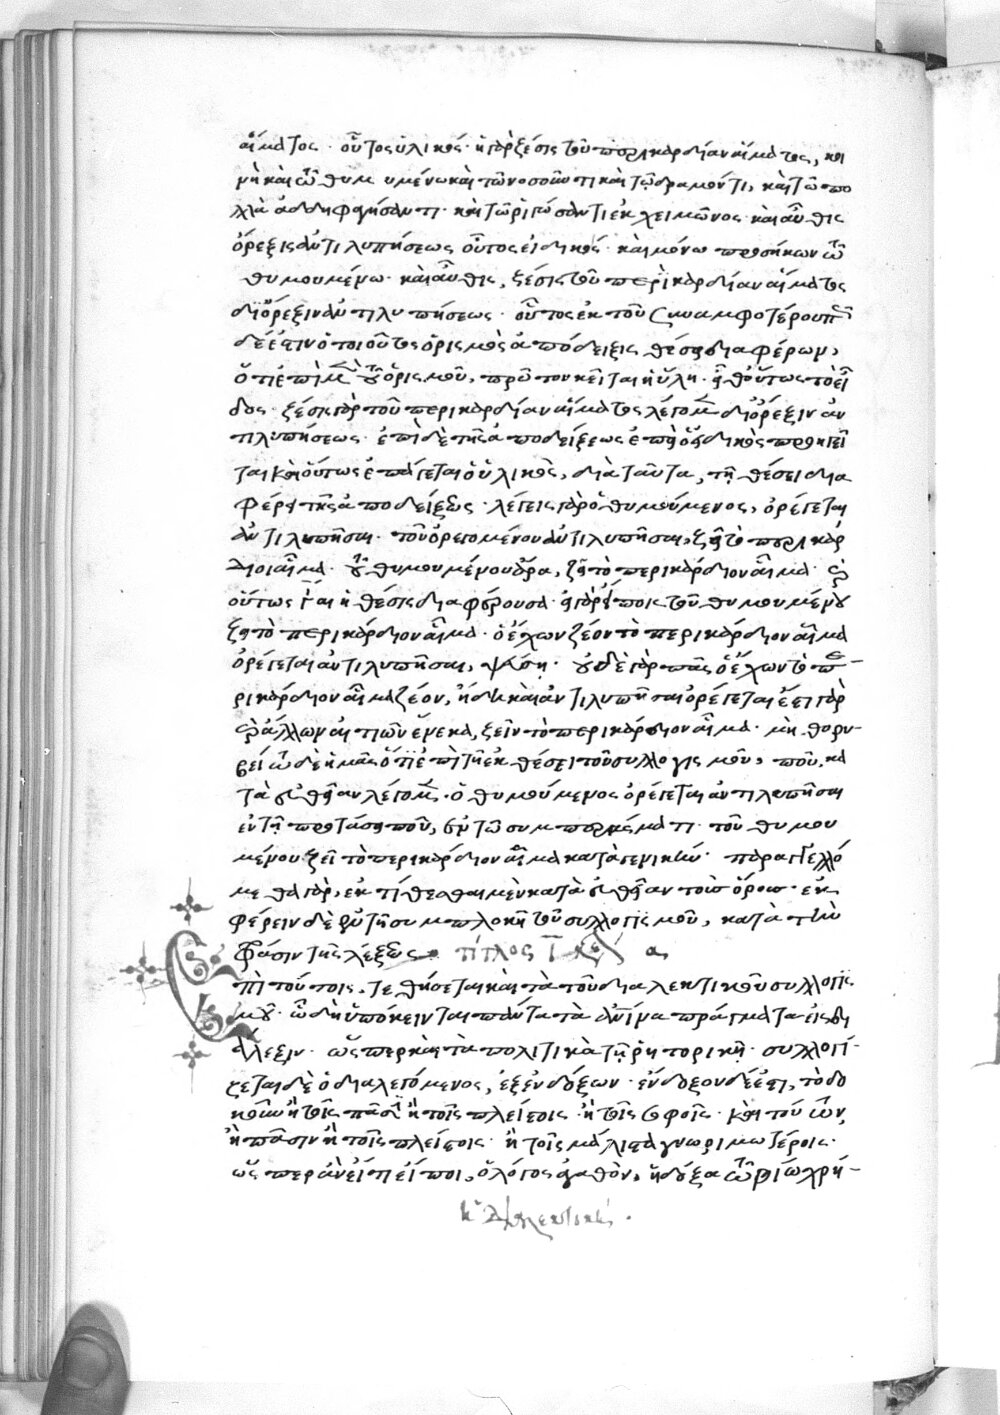 αἵματος· οὗτος ὑλικός· ἡ γὰρ ζέσις τοῦ περικαρδίου αἵματος, κοι
νὴ καὶ τῷ θυμουμένῳ καὶ τῷ νοσοῦντι καὶ τῷ δραμόντι, καὶ τῷ πο
λλὰ ἀδδηφαγήσαντι· καὶ τῷ ῥιγώσαντι ἐκ χειμῶνος· καὶ αὖθις
ὄρεξις ἀντιλυπήσεως οὗτος εἰδικός· καὶ μόνῳ προσήκων τῷ
θυμουμένῳ· καὶ αὖθις, ζέσις τοῦ περικαρδίου αἵματος
δι' ὄρεξιν ἀντιλυπήσεως· οὗτος ἐκ τοῦ συναμφοτέρου
δέ ἐστιν ὁ τοιοῦτος ὁρισμὸς ἀπόδειξις θέσει διαφέρων,
ὅτι ἐπὶ μὲν τοῦ ὁρισμοῦ, πρῶτον κεῖται ἡ ὕλη· εἶθ' οὕτως τὸ εἶ
δος· ζέσις γὰρ τοῦ περικαρδίου αἵματος λέγομεν δι' ὄρεξιν ἀν
τιλυπήσεως· ἐπὶ δὲ τῆς ἀποδείξεως ἐπεὶ ὁ εἰδικὸς προηγεῖ
ται καὶ οὕτως ἐπάγεται ὁ ὑλικὸς, διὰ ταῦτα, τῇ θέσει δια
φέρει τῆς ἀποδείξεως· λέγεις γὰρ ὁ θυμούμενος, ὀρέγεται
ἀντιλυπῆσαι· τοῦ ὀρεγομένου ἀντιλυπῆσαι, ζεῖ τὸ περικάρ
διον αἷμα· τοῦ θυμουμένου ἄρα, ζεῖ τὸ περικάρδιον αἷμα·
οὕτως γὰρ ἡ θέσις διαφέρουσα· εἰ γὰρ εἴποις τοῦ θυμουμένου
ζεῖ τὸ περικάρδιον αἷμα· ὁ ἔχων ζέον τὸ περικάρδιον αἷμα
ὀρέγεται ἀντιλυπῆσαι, ψεύσῃ· οὐδὲ γὰρ πᾶς ὁ ἔχων τὸ πε-
ρικάρδιον αἷμα ζέον, ἤδη καὶ ἀντιλυπῆσαι ὀρέγεται ἔστι γὰρ
ἄλλων αἰτιῶν ἕνεκα, ζεῖν τὸ περικάρδιον αἷμα· μὴ θορυ-
βείτω δὲ ἡμᾶς ὅτι ἐπὶ τῇ ἐκθέσει τοῦ συλλογισμοῦ, ποῦ, κα
τὰ εὐθεῖαν λέγομεν· ὁ θυμούμενος ὀρέγεται ἀντιλυπῆσαι
ἐν τῇ προτάσει ποῦ, ἐν τῷ συμπεράσματι· τοῦ θυμου
μένου ζεῖ τὸ περικάρδιον αἷμα κατὰ γενικήν· παραγγελλό
μεθα γὰρ, ἐκτίθεσθαι μὲν κατὰ εὐθεῖαν τοὺς ὅρους· ἐκ
φέρειν δὲ ἐν τῇ συμπλοκῇ τοῦ συλλογισμοῦ, κατὰ τὴν
φράσιν τῆς λέξεως· τίτλος κεφ α
Ἐπὶ τούτοις, τεθήσεται καὶ τὰ τοῦ διαλεκτικοῦ συλλογισ
μοῦ· ᾧ δὴ ὑπόκεινται πάντα τὰ ἀνώνυμα πράγματα εἰς διά
λεξιν· ὥσπερ καὶ τὰ πολιτικὰ τῇ ῥητορικῇ· συλλογί-
ζεται δὲ ὁ διαλεγόμενος, ἐξ ἐνδόξων· ἔνδοξον δέ ἐστι, τὸ δο
κοῦν ἢ τοῖς πᾶσι ἢ τοῖς πλείστοις· ἢ τοῖς σοφοῖς· καὶ τούτων,
ἢ πᾶσιν ἢ τοῖς πλείστοις· ἢ τοῖς μάλιστα γνωριμωτέροις·
ὥσπερ ἂν εἴ τι εἴποι, ὁ λόγος ἀγαθὸν, ἡ δόξα τῷ βίῳ χρή-
ἡ διαλεκτική.